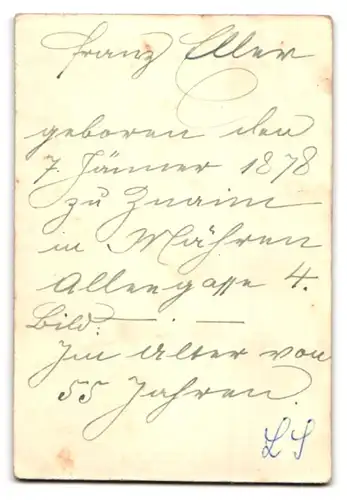 Franz Eller
geboren den
7. Jänner 1878
zu Znaim
in Mähren
Allengasse 4.
Bild. — . —
Im Alter von
55 Jahren.
LS